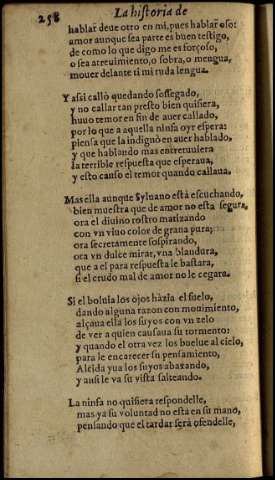 258 La historia de
hablar deue otro en mi, pues hablar oso:
amor aunque sea parte es buen testigo,
de como lo que digo me es forçoso,
o sea atreuimiento, o sobra, o mengua,
mouer delante ti mi ruda lengua.
Y assi callò quedando sossegado,
y no callar tan presto bien quisiera,
huuo temor en fin de auer callado,
por lo que a aquella ninfa oyr espera:
piensa que la indignò en auer hablado,
y que hablando mas entretuuiera
la terrible respuesta que esperaua,
y esto causo el temor quando callaua.
Mas ella aunque Syluano està escuchando,
bien muestra que de amor no esta segura,
ora el diuino rostro matizando
con vn viuo color de grana pura;
ora secretamente sospirando,
ora vn dulce mirar, vna blandura,
que a el para respuesta le bastara,
si el crudo mal de amor no le cegara.
Si el boluia los ojos hàzia el suelo,
dando alguna razon con mouimiento,
alçaua ella los suyos con vn zelo
de ver a quien causaua su tormento:
y quando el otra vez los buelue al cielo,
para le encarecer su pensamiento,
Alcida yua los suyos abaxando,
y ansi le va su vista salteando.
La ninfa no quisiera respondelle,
mas ya su voluntad no està en su mano,
pensando que el tardar serà ofendelle,